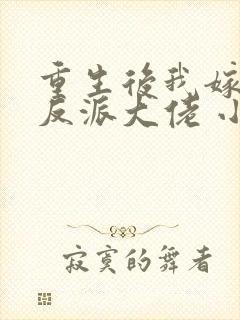 重生後我嫁
反派大佬小
寂寞的舞者